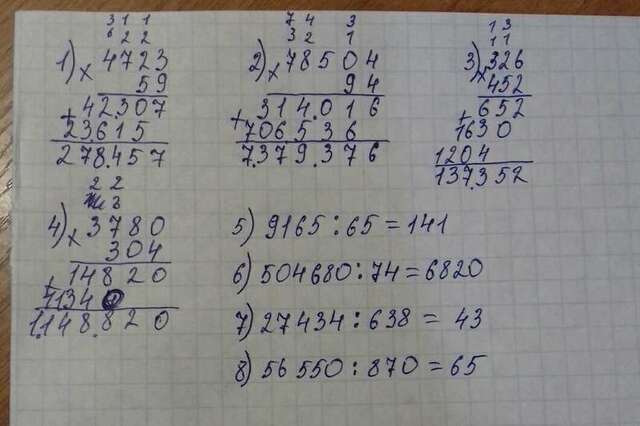 3 1 1
6 2 2
1) × 4723
59
+ 42307
23615
278.457
7 4 3
3 2 1
2) × 78504
94
+ 314.016
706536
7.379.376
1 3
1 1
3) × 326
452
+ 652
1630
1204
137.352
2 2
3
4) × 3780
304
+ 14820
11340
1.148.820
5) 9165 : 65 = 141
6) 504680 : 74 = 6820
7) 27434 : 638 = 43
8) 56 550 : 870 = 65